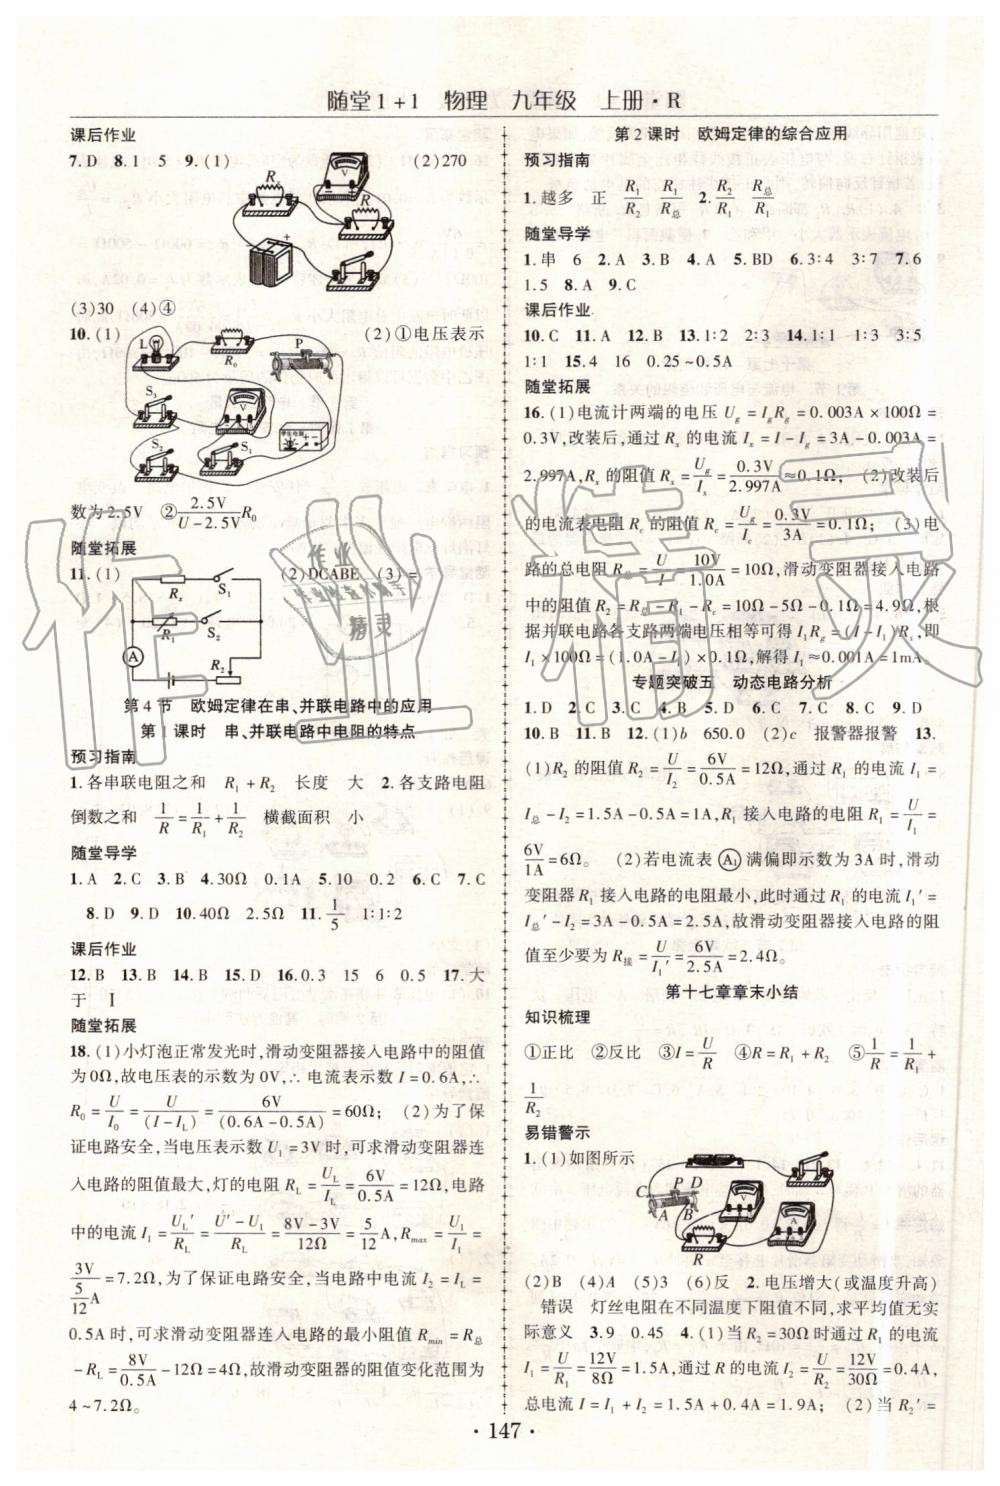 随堂1+1 物理 九年级 上册·R
课后作业
7.D 8.1 5 9.(1) (2)270
(3)30 (4)④
10.(1) (2)①电压表示
数为2.5V ②2.5V/(U-2.5V)R₀
随堂拓展
11.(1) (2)DCABE (3)=
第4节 欧姆定律在串、并联电路中的应用
第1课时 串、并联电路中电阻的特点
预习指南
1.各串联电阻之和 R₁+R₂ 长度 大 2.各支路电阻
倒数之和 1/R=1/R₁+1/R₂ 横截面积 小
随堂导学
1.A 2.C 3.B 4.30Ω 0.1A 5.10 0.2 6.C 7.C
8.D 9.D 10.40Ω 2.5Ω 11.1/5 1:1:2
课后作业
12.B 13.B 14.B 15.D 16.0.3 15 6 0.5 17.大
于 Ⅰ
随堂拓展
18.(1)小灯泡正常发光时,滑动变阻器接入电路中的阻值
为0Ω,故电压表的示数为0V,∴电流表示数I=0.6A,∴
R₀=U/I₀=U/(I-I_L)=6V/(0.6A-0.5A)=60Ω; (2)为了保
证电路安全,当电压表示数U₁=3V时,可求滑动变阻器连
入电路的阻值最大,灯的电阻R_L=U_L/I_L=6V/0.5A=12Ω,电路
中的电流I₁=U_L′/R_L=(U′-U₁)/R_L=(8V-3V)/12Ω=5/12A,R_max=U₁/I₁=
3V/(5/12A)=7.2Ω,为了保证电路安全,当电路中电流I₂=I_L=
0.5A时,可求滑动变阻器连入电路的最小阻值R_min=R_总
-R_L=8V/0.5A-12Ω=4Ω,故滑动变阻器的阻值变化范围为
4~7.2Ω。
第2课时 欧姆定律的综合应用
预习指南
1.越多 正 R₁/R₂ R₁/R_总 2.R₂/R₁ R_总/R₁
随堂导学
1.串 6 2.A 3.B 4.A 5.BD 6.3:4 3:7 7.6
1.5 8.A 9.C
课后作业
10.C 11.A 12.B 13.1:2 2:3 14.1:1 1:3 3:5
1:1 15.4 16 0.25~0.5A
随堂拓展
16.(1)电流计两端的电压U_g=I_gR_g=0.003A×100Ω=
0.3V,改装后,通过Rₓ的电流Iₓ=I-I_g=3A-0.003A=
2.997A,Rₓ的阻值Rₓ=U_g/Iₓ=0.3V/2.997A≈0.1Ω; (2)改装后
的电流表电阻R_c的阻值R_c=U_g/I_c=0.3V/3A=0.1Ω; (3)电
路的总电阻R=U/I=10V/1.0A=10Ω,滑动变阻器接入电路
中的阻值R₂=R_总-R₁-R_c=10Ω-5Ω-0.1Ω=4.9Ω,根
据并联电路各支路两端电压相等可得I₁R_g=(I-I₁)Rₓ,即
I₁×100Ω=(1.0A-I₁)×0.1Ω,解得I₁≈0.001A=1mA。
专题突破五 动态电路分析
1.D 2.C 3.C 4.B 5.D 6.C 7.C 8.C 9.D
10.B 11.B 12.(1)b 650.0 (2)c 报警器报警 13.
(1)R₂的阻值R₂=U/I₂=6V/0.5A=12Ω,通过R₁的电流I₁=
I_总-I₂=1.5A-0.5A=1A,R₁接入电路的电阻R₁=U/I₁=
6V/1A=6Ω。 (2)若电流表A₁满偏即示数为3A时,滑动
变阻器R₁接入电路的电阻最小,此时通过R₁的电流I₁′=
I_总′-I₂=3A-0.5A=2.5A,故滑动变阻器接入电路的阻
值至少要为R_接=U/I₁′=6V/2.5A=2.4Ω。
第十七章章末小结
知识梳理
①正比 ②反比 ③I=U/R ④R=R₁+R₂ ⑤1/R=1/R₁+
1/R₂
易错警示
1.(1)如图所示
(2)B (4)A (5)3 (6)反 2.电压增大(或温度升高)
错误 灯丝电阻在不同温度下阻值不同,求平均值无实
际意义 3.9 0.45 4.(1)当R₂=30Ω时通过R₁的电流
I₁=U/R₁=12V/8Ω=1.5A,通过R的电流I₂=U/R₂=12V/30Ω=0.4A,
总电流I=I₁+I₂=1.5A+0.4A=1.9A; (2)当R₂′=
·147·
作业精灵